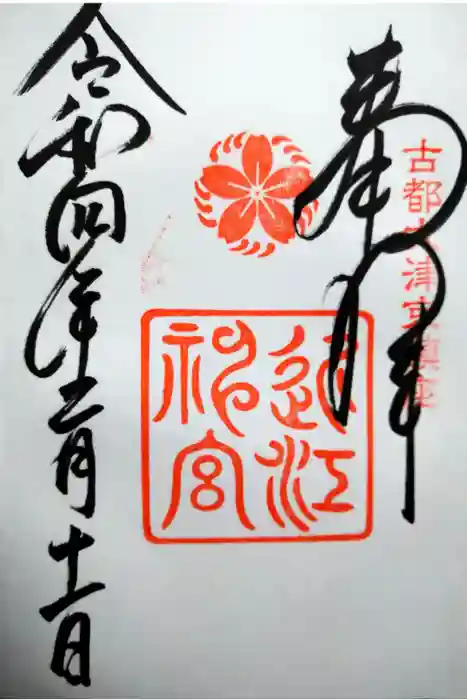 奉拝
古都大津宮鎮座
近江神宮
令和四年二月十一日